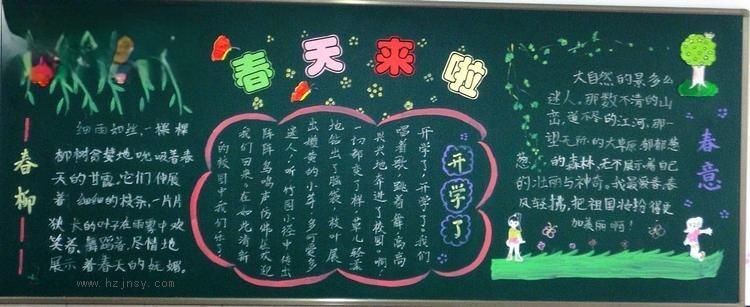 春天来啦
春柳
细雨如丝,一棵棵
柳树贪婪地吮吸着春
天的甘露。它们伸展
着细细的枝条,一片片
狭长的叶子在雨雾中欢
笑着、舞蹈着、尽情地
展示着春天的妩媚。
www.hzjnsy.com
开学了
开学了!开学了!我们
唱着歌,跳着舞,高高
兴兴地奔进了校园。啊!
一切都变了样,草儿轻轻
地钻出了脑袋,枝叶展
出嫩黄的小芽,多可爱多
迷人!听,竹园小径中传出
阵阵鸟鸣声,仿佛是欢迎
我们回来。在如此清新
的校园中,我们
春意
大自然的景多么
迷人,那数不清的山
峦,望不尽的江河,那一
望无际的大草原,郁郁葱
葱的森林,无不展示着自己
的壮丽与神奇。我最爱春,春
风轻拂,把祖国
加美丽啊!